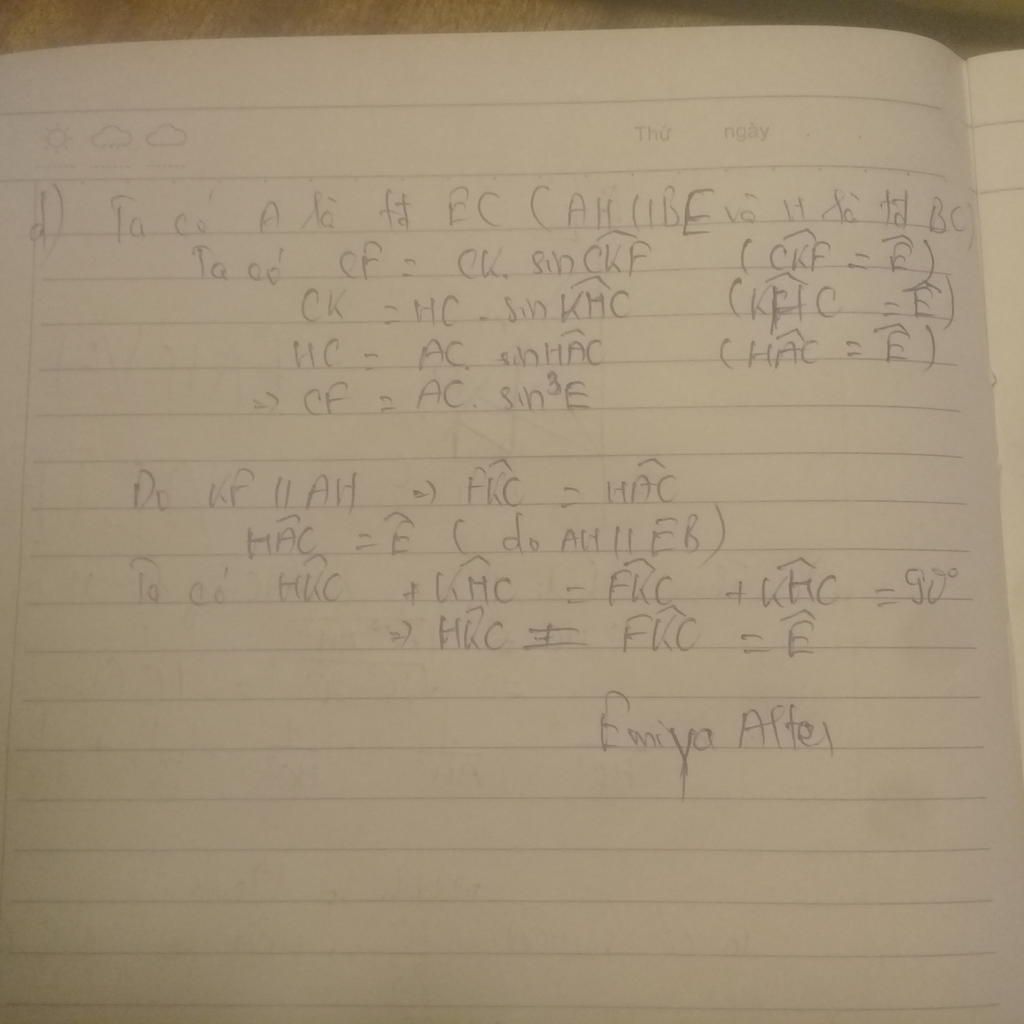 Thứ ngày
d) Ta có A là tđ EC (AH // BE và H là tđ BC)
Ta có CF = CK. sin \widehat{CKF} (\widehat{CKF} = \widehat{E})
CK = HC. sin \widehat{KHC} (\widehat{KHC} = \widehat{E})
HC = AC. sin \widehat{HAC} (\widehat{HAC} = \widehat{E})
=> CF = AC. sin³E
Do KF // AH => \widehat{FKC} = \widehat{HAC}
\widehat{HAC} = \widehat{E} (do AH // EB)
Ta có \widehat{HKC} + \widehat{KHC} = \widehat{FKC} + \widehat{KHC} = 90°
=> \widehat{HKC} = \widehat{FKC} = \widehat{E}
Emiya Alter